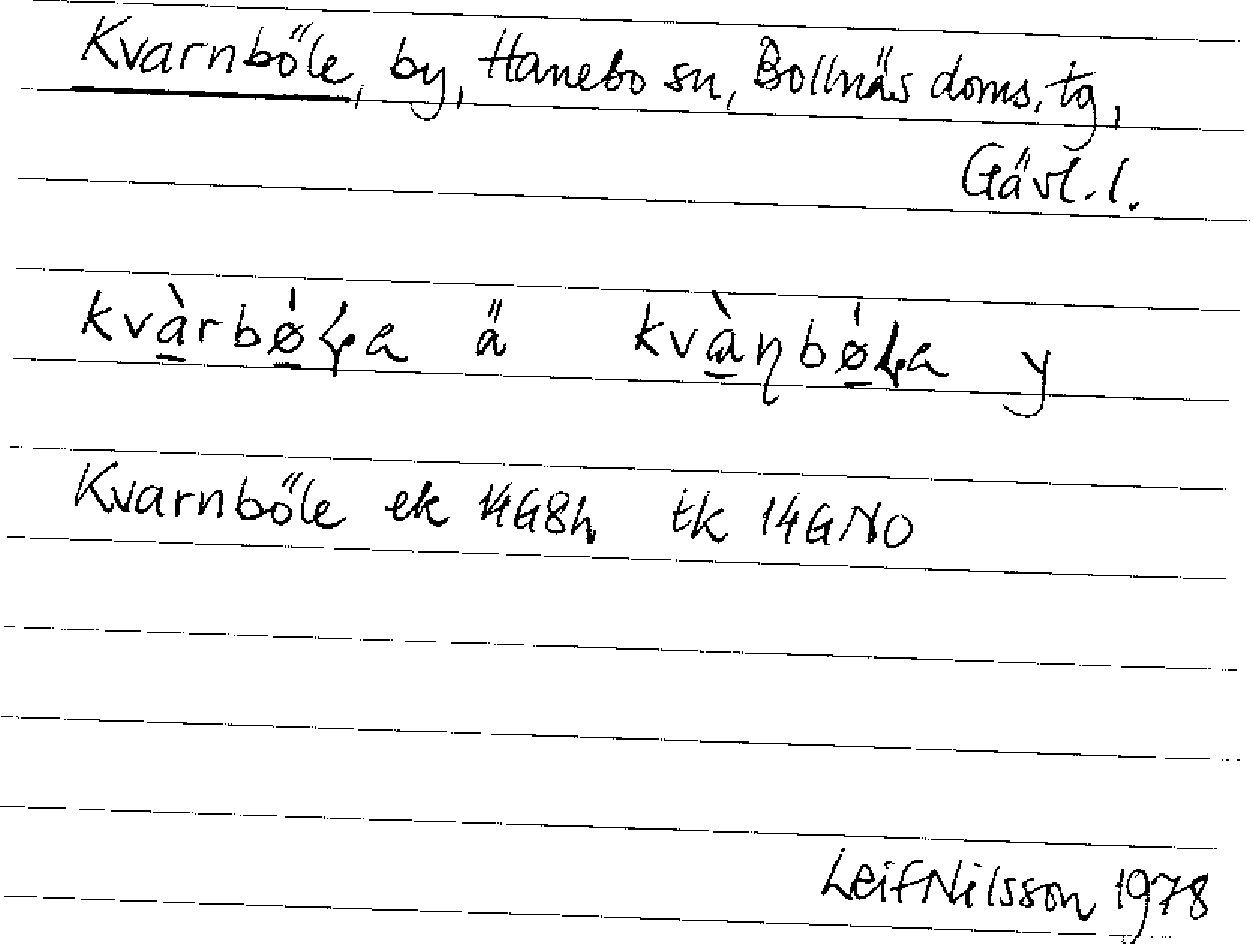 Kvarnböle, by, Hanebo sn, Bollnäs doms. tg,
Gävl. l.
kvà̱rbǿ̱ɽa ä kvà̱ɳbǿ̱ɽa y
Kvarnböle ek 14G8h tk 14GNO
Leif Nilsson 1978